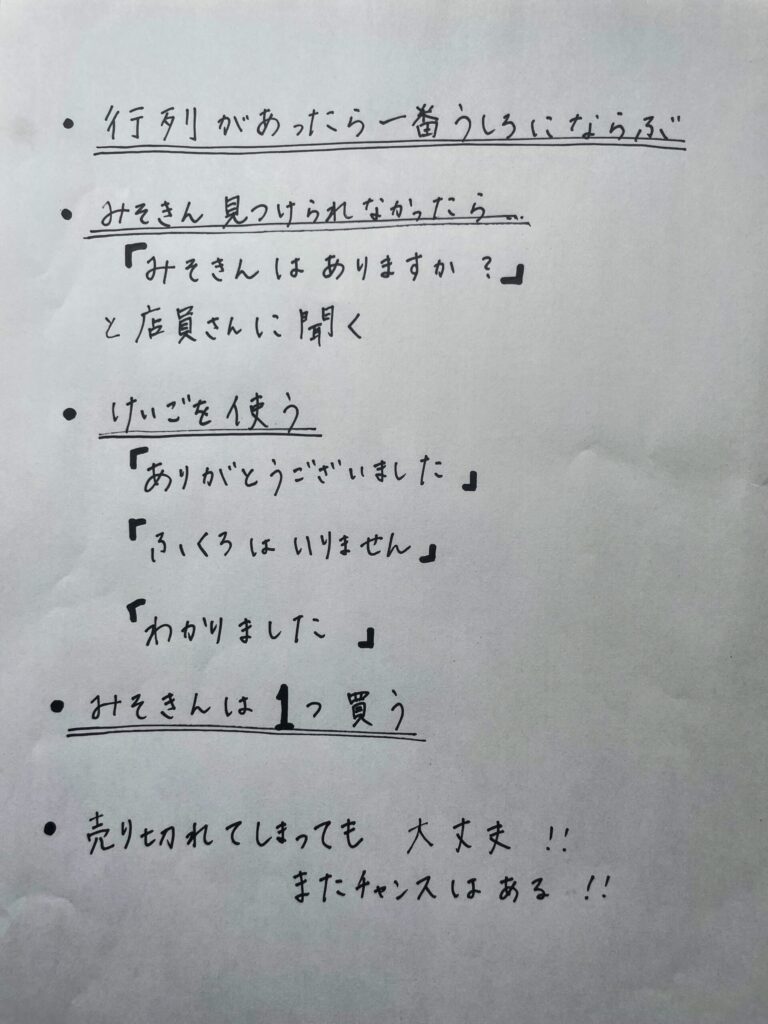 • 行列があったら一番うしろにならぶ
• みそきん見つけられなかったら…
『みそきんはありますか?』
と店員さんに聞く
• けいごを使う
『ありがとうございました』
『ふくろはいりません』
『わかりました』
• みそきんは1つ買う
• 売り切れてしまっても 大丈夫!!
またチャンスはある!!